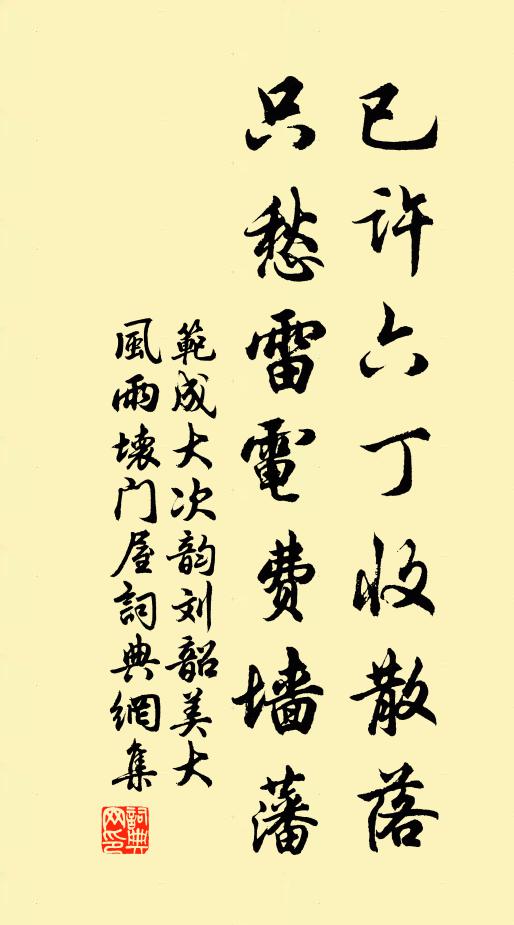 已许六丁收散落
只愁雷電费墙藩
範成大次韵刘韶美大
風雨壊门屋詞典網集
詞典網印